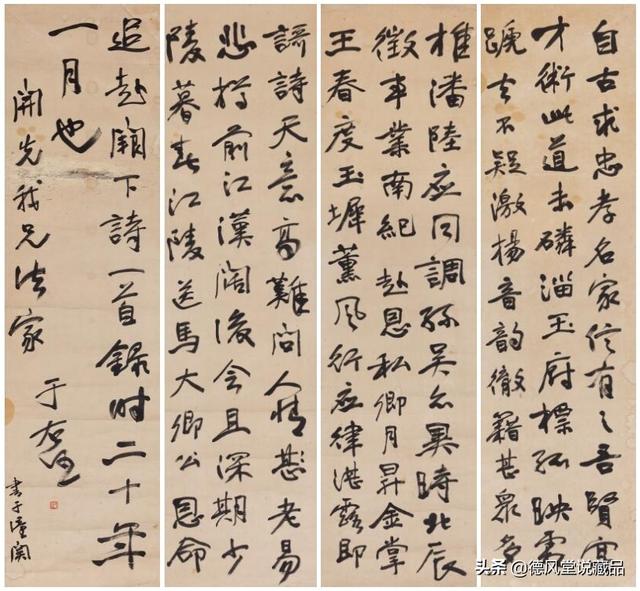 自古求忠孝名家信有之吾賢富
才術此道未磷淄玉府標孤映霜
蹏去不疑激揚音韵徹籍甚衆多
推潘陸應同調孫吳亦異時北辰
徵事業南紀赴恩私卿月昇金掌
王春度玉墀薰風行應律湛露即
謌詩天意高難問人情老易
悲樽前江漢闊後會且深期少
陵暮春江陵送馬大卿公恩命
追赴闕下詩一首錄时二十年
一月也
開先我兄法家
于右任
書于潼関
头条 @德风堂说藏品